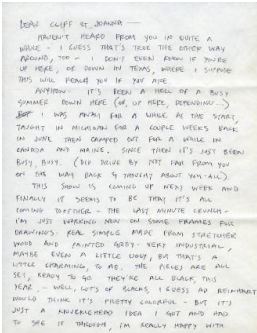 DEAR CLIFF & JOANNA —
HAVEN'T HEARD FROM YOU IN QUITE A
WHILE - I GUESS THAT'S TRUE THE OTHER WAY
AROUND, TOO - I DON'T EVEN KNOW IF YOU'RE
UP HERE, OR DOWN IN TEXAS, WHERE I SUPPOSE
THIS WILL REACH YOU IF YOU ARE
ANYHOW - IT'S BEEN A HELL OF A BUSY
SUMMER DOWN HERE (OR, UP HERE, DEPENDING -)
I WAS AWAY FOR A WHILE AT THE START,
TAUGHT IN MICHIGAN FOR A COUPLE WEEKS BACK
IN JUNE THEN CAMPED OUT FOR A WHILE IN
CANADA AND MAINE. SINCE THEN IT'S JUST BEEN
BUSY, BUSY. (DID DRIVE BY NOT FAR FROM YOU
ON THE WAY BACK & THOUGHT ABOUT YOU-ALL).
THIS SHOW IS COMING UP NEXT WEEK AND
FINALLY IT SEEMS TO BE THAT IT'S ALL
COMING TOGETHER - THE LAST MINUTE CRUNCH -
I'M JUST WORKING NOW ON SOME FRAMES FOR
DRAWINGS. REAL SIMPLE MADE FROM STRETCHER
WOOD AND PAINTED GREY - VERY INDUSTRIAL,
MAYBE EVEN A LITTLE UGLY, BUT THAT'S A
LITTLE CHARMING, TO ME. THE PIECES ARE ALL
SET, READY TO GO THEY'RE ALL BLACK, THIS
YEAR - WELL, LOTS OF BLACKS, I GUESS AD REINHARDT
WOULD THINK IT'S PRETTY COLORFUL - BUT IT'S
JUST A KNUCKLEHEAD IDEA I GOT AND HAD
TO SEE IT THROUGH, I'M REALLY HAPPY WITH